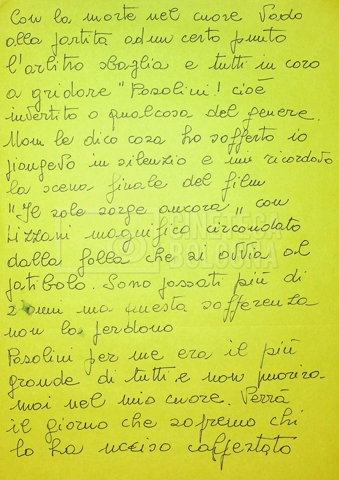 Con la morte nel cuore Vado
alla partita ad un certo punto
l'arbitro sbaglia e tutti in coro
a gridare "Pasolini! cioè
invertito o qualcosa del genere.
Non le dico cosa ho sofferto io
piangevo in silenzio e mi ricordavo
la scena finale del film
"Il sole sorge ancora" con
Lizzani magnifico circondato
dalla folla che si avvia al
patibolo. Sono passati più di
2 anni ma questa sofferenza
non la perdono
Pasolini per me era il più
grande di tutti e non morirà
mai nel mio cuore. Verrà
il giorno che sapremo chi
lo ha ucciso
CINETECA
BOLOGNA